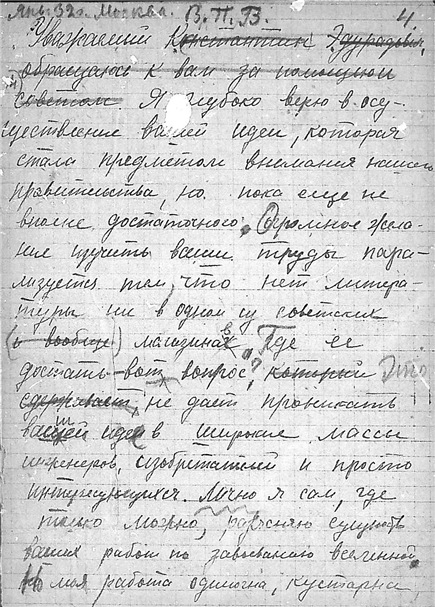 Янв. 32 г. Москва. В.П.В. 4.
Уважаемый Константин Эдуардович,
обращаюсь к вам за помощью и
советом Я глубоко верю в осу-
ществление вашей идеи, которая
стала предметом внимания нашего
правительства, но пока еще не
вполне достаточного. Огромное жела-
ние изучить ваши труды пара-
лизуется тем, что нет литера-
туры ни в одном из советских
(и вообще) магазинах. Где ее
достать вот вопрос, который Это
сдерживает, не дает проникать
вашей идее в широкие массы
инженеров, изобретателей и просто
интересующихся. Лично я сам, где
только можно, разъясняю сущность
ваших работ по завоеванию вселенной.
Но моя работа одиночна, кустарна,